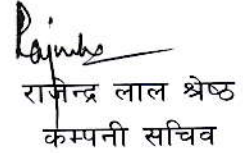 राजेन्द्र लाल श्रेष्ठ
कम्पनी सचिव